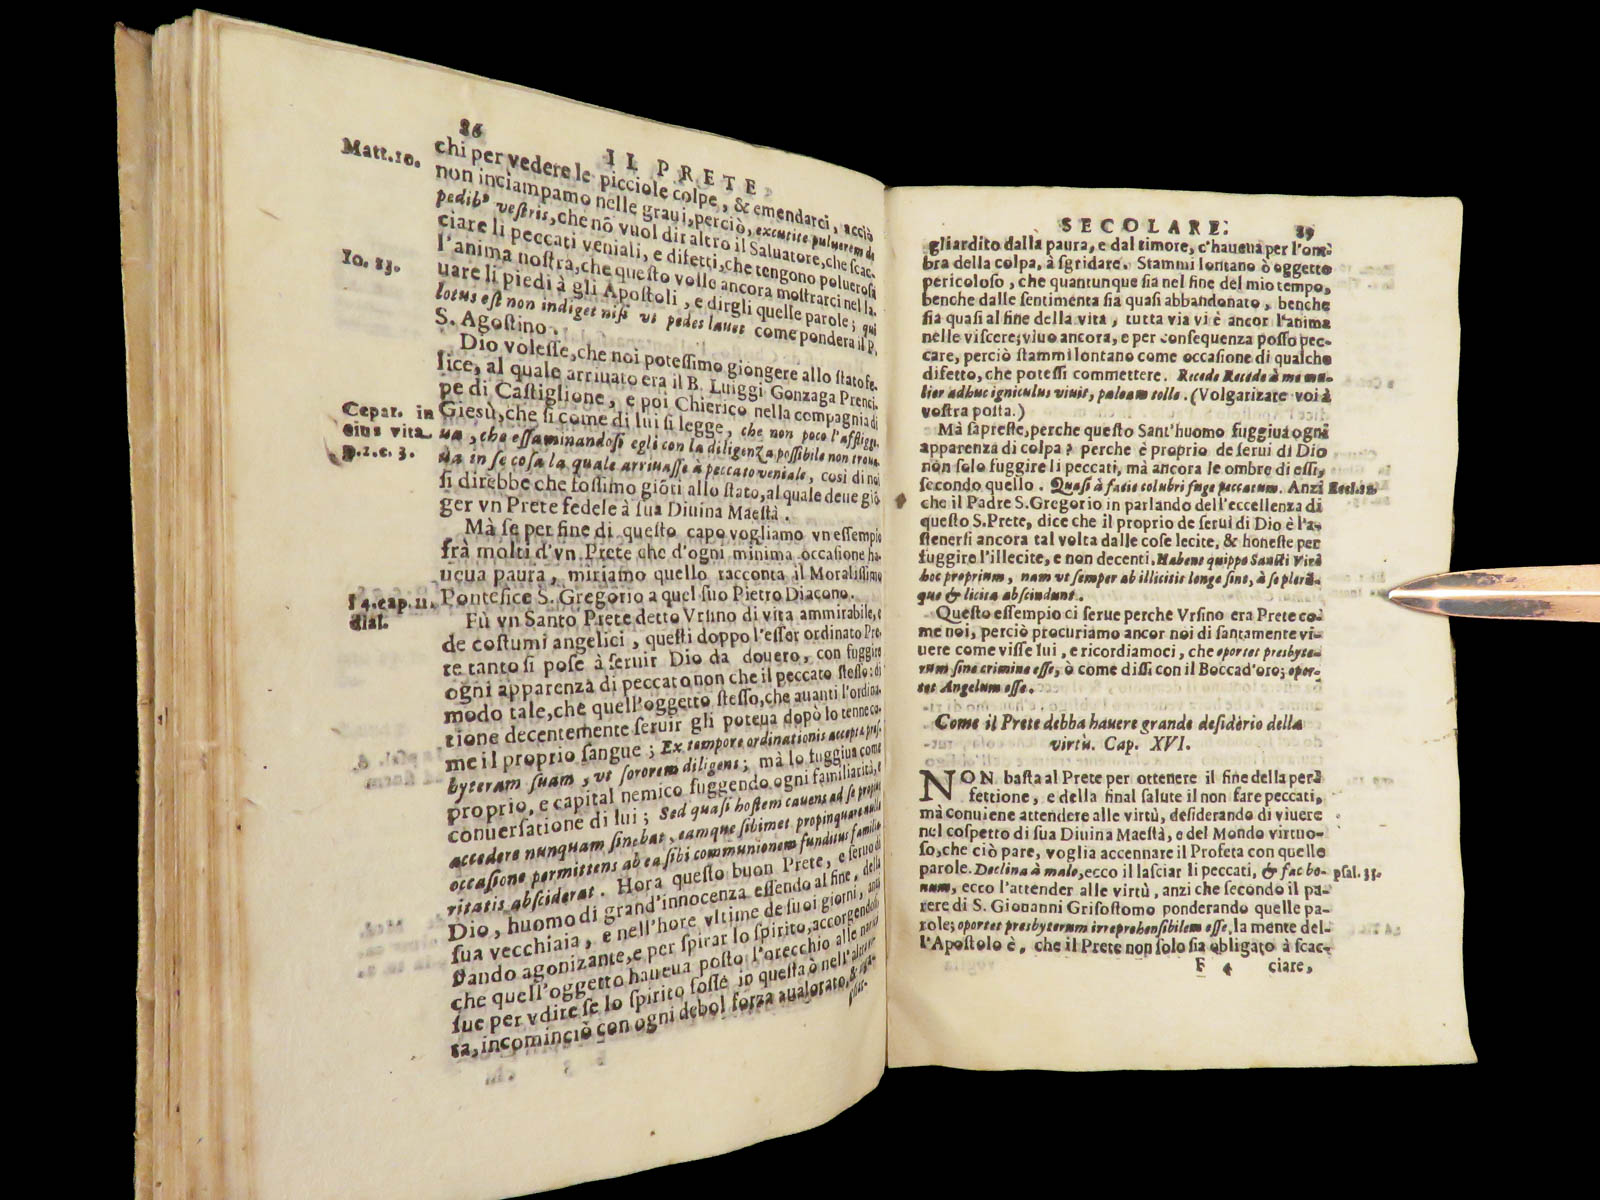 86
IL PRETE
Matt.10.
chi per vedere le picciole colpe, & emendarci, acciò
non inciampamo nelle graui, perciò, excutite puluerem de
pedibꝰ vestris, che nõ vuol dir altro il Saluatore, che scac-
ciare li peccati veniali, e difetti, che tengono poluerosa
l'anima nostra, che questo volle ancora mostrarci nel la-
Io. 13.
uare li piedi à gli Apostoli, e dirgli quelle parole; qui
lotus est non indiget nisi vt pedes lauet come pondera il P.
S. Agostino.
Dio volesse, che noi potessimo giongere allo stato fe-
lice, al quale arriuato era il B. Luiggi Gonzaga Prenci-
pe di Castiglione, e poi Chierico nella compagnia di
Cepar. in
eius vita
p.1.c. 3.
Giesù, che si come di lui si legge, che non poco l'affligge-
ua, che essaminandosi egli con la diligenza possibile non troua-
ua in se cosa la quale arriuasse à peccato veniale, così di noi
si direbbe che fossimo giõti allo stato, al quale deue giõ-
ger vn Prete fedele à sua Diuina Maestà.
Mà se per fine di questo capo vogliamo vn essempio
frà molti d'vn Prete che d'ogni minima occasione ha-
ueua paura, miriamo quello racconta il Moralissimo
Pontefice S. Gregorio a quel suo Pietro Diacono.
4.cap. 11.
dial.
Fù vn Santo Prete detto Vrsino di vita ammirabile, e
de costumi angelici, questi doppo l'esser ordinato Pre-
te tanto si pose à seruir Dio da douero, con fuggire
ogni apparenza di peccato non che il peccato stesso: di
modo tale, che quell'oggetto stesso, che auanti l'ordina-
tione decentemente seruir gli poteua dopò lo tenne co-
me il proprio sangue; Ex tempore ordinationis accepta pres-
byteram suam, vt sororem diligens; mà lo fuggiua come
proprio, e capital nemico fuggendo ogni familiarità, e
conuersatione di lui; Sed quasi hostem cauens ad se propius
accedere nunquam sinebat, eamque sibimet propinquare nulla
occasione permittens ab ea sibi communionem funditus familia-
ritatis absciderat. Hora questo buon Prete, e seruo di
Dio, huomo di grand'innocenza essendo al fine, della
sua vecchiaia, e nell'hore vltime de suoi giorni, anzi
stando agonizante, e per spirar lo spirito, accorgendosi
che quell'oggetto haueua posto l'orecchio alle nari
sue per vdire se lo spirito fosse in questa ò nell'altra vi-
ta, incominciò con ogni debol forza aualorato, &
SECOLARE.
gliardito dalla paura, e dal timore, c'haueua per l'om-
bra della colpa, à sgridare. Stammi lontano ò oggetto
pericoloso, che quantunque sia nel fine del mio tempo,
benche dalle sentimenta sia quasi abbandonato, benche
sia quasi al fine della vita, tutta via vi è ancor l'anima
nelle viscere; viuo ancora, e per consequenza posso pec-
care, perciò stammi lontano come occasione di qualche
difetto, che potessi commettere. Recede Recede à me mu-
lier adhuc igniculus viuit, paleam tolle. (Volgarizate voi à
vostra posta.)
Mà sapreste, perche questo Sant'huomo fuggiua ogni
apparenza di colpa? perche è proprio de serui di Dio
non solo fuggire li peccati, mà ancora le ombre di essi,
secondo quello. Quasi à facie colubri fuge peccatum. Anzi
che il Padre S. Gregorio in parlando dell'eccellenza di
questo S. Prete, dice che il proprio de serui di Dio è l'a-
stenersi ancora tal volta dalle cose lecite, & honeste per
fuggire l'illecite, e non decenti. Habent quippe Sancti Viri
hoc proprium, nam vt semper ab illicitis longe sint, à se plerũ-
que & licita abscindunt.
Questo essempio ci serue perche Vrsino era Prete co-
me noi, perciò procuriamo ancor noi di santamente vi-
uere come visse lui, e ricordiamoci, che oportet presbyte-
rum sine crimine esse, ò come dissi con il Boccad'oro; opor-
tet Angelum esse.
Come il Prete debba hauere grande desiderio della
virtù. Cap. XVI.
NON basta al Prete per ottenere il fine della per-
fettione, e della final salute il non fare peccati,
mà conuiene attendere alle virtù, desiderando di viuere
nel cospetto di sua Diuina Maestà, e del Mondo virtuo-
so, che ciò pare, voglia accennare il Profeta con quelle
parole. Declina à malo, ecco il lasciar li peccati, & fac bo-
psal. 33.
num, ecco l'attender alle virtù, anzi che secondo il pa-
rere di S. Giouanni Grisostomo ponderando quelle pa-
role; oportet presbyterum irreprehensibilem esse, la mente del-
l'Apostolo è, che il Prete non solo sia obligato à scac-
F 4 ciare,